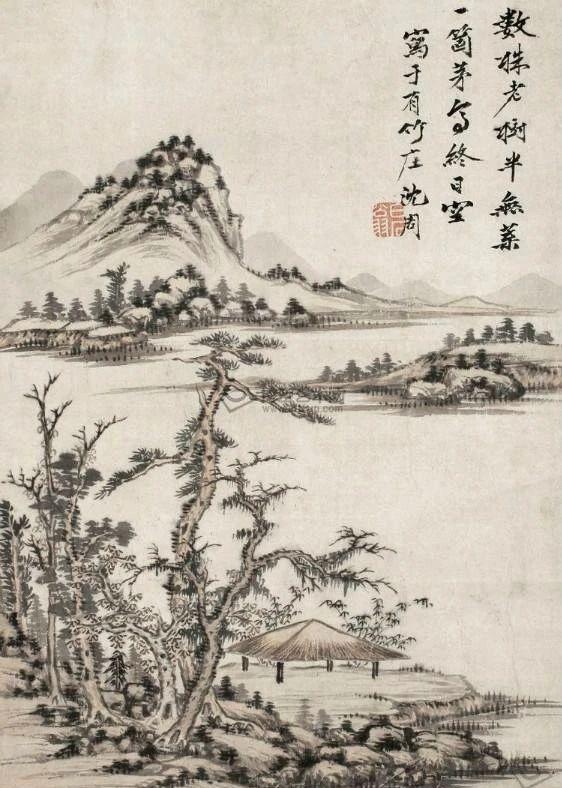 數株老樹半無葉
一箇茅亭終日空
寫于有竹庄沈周